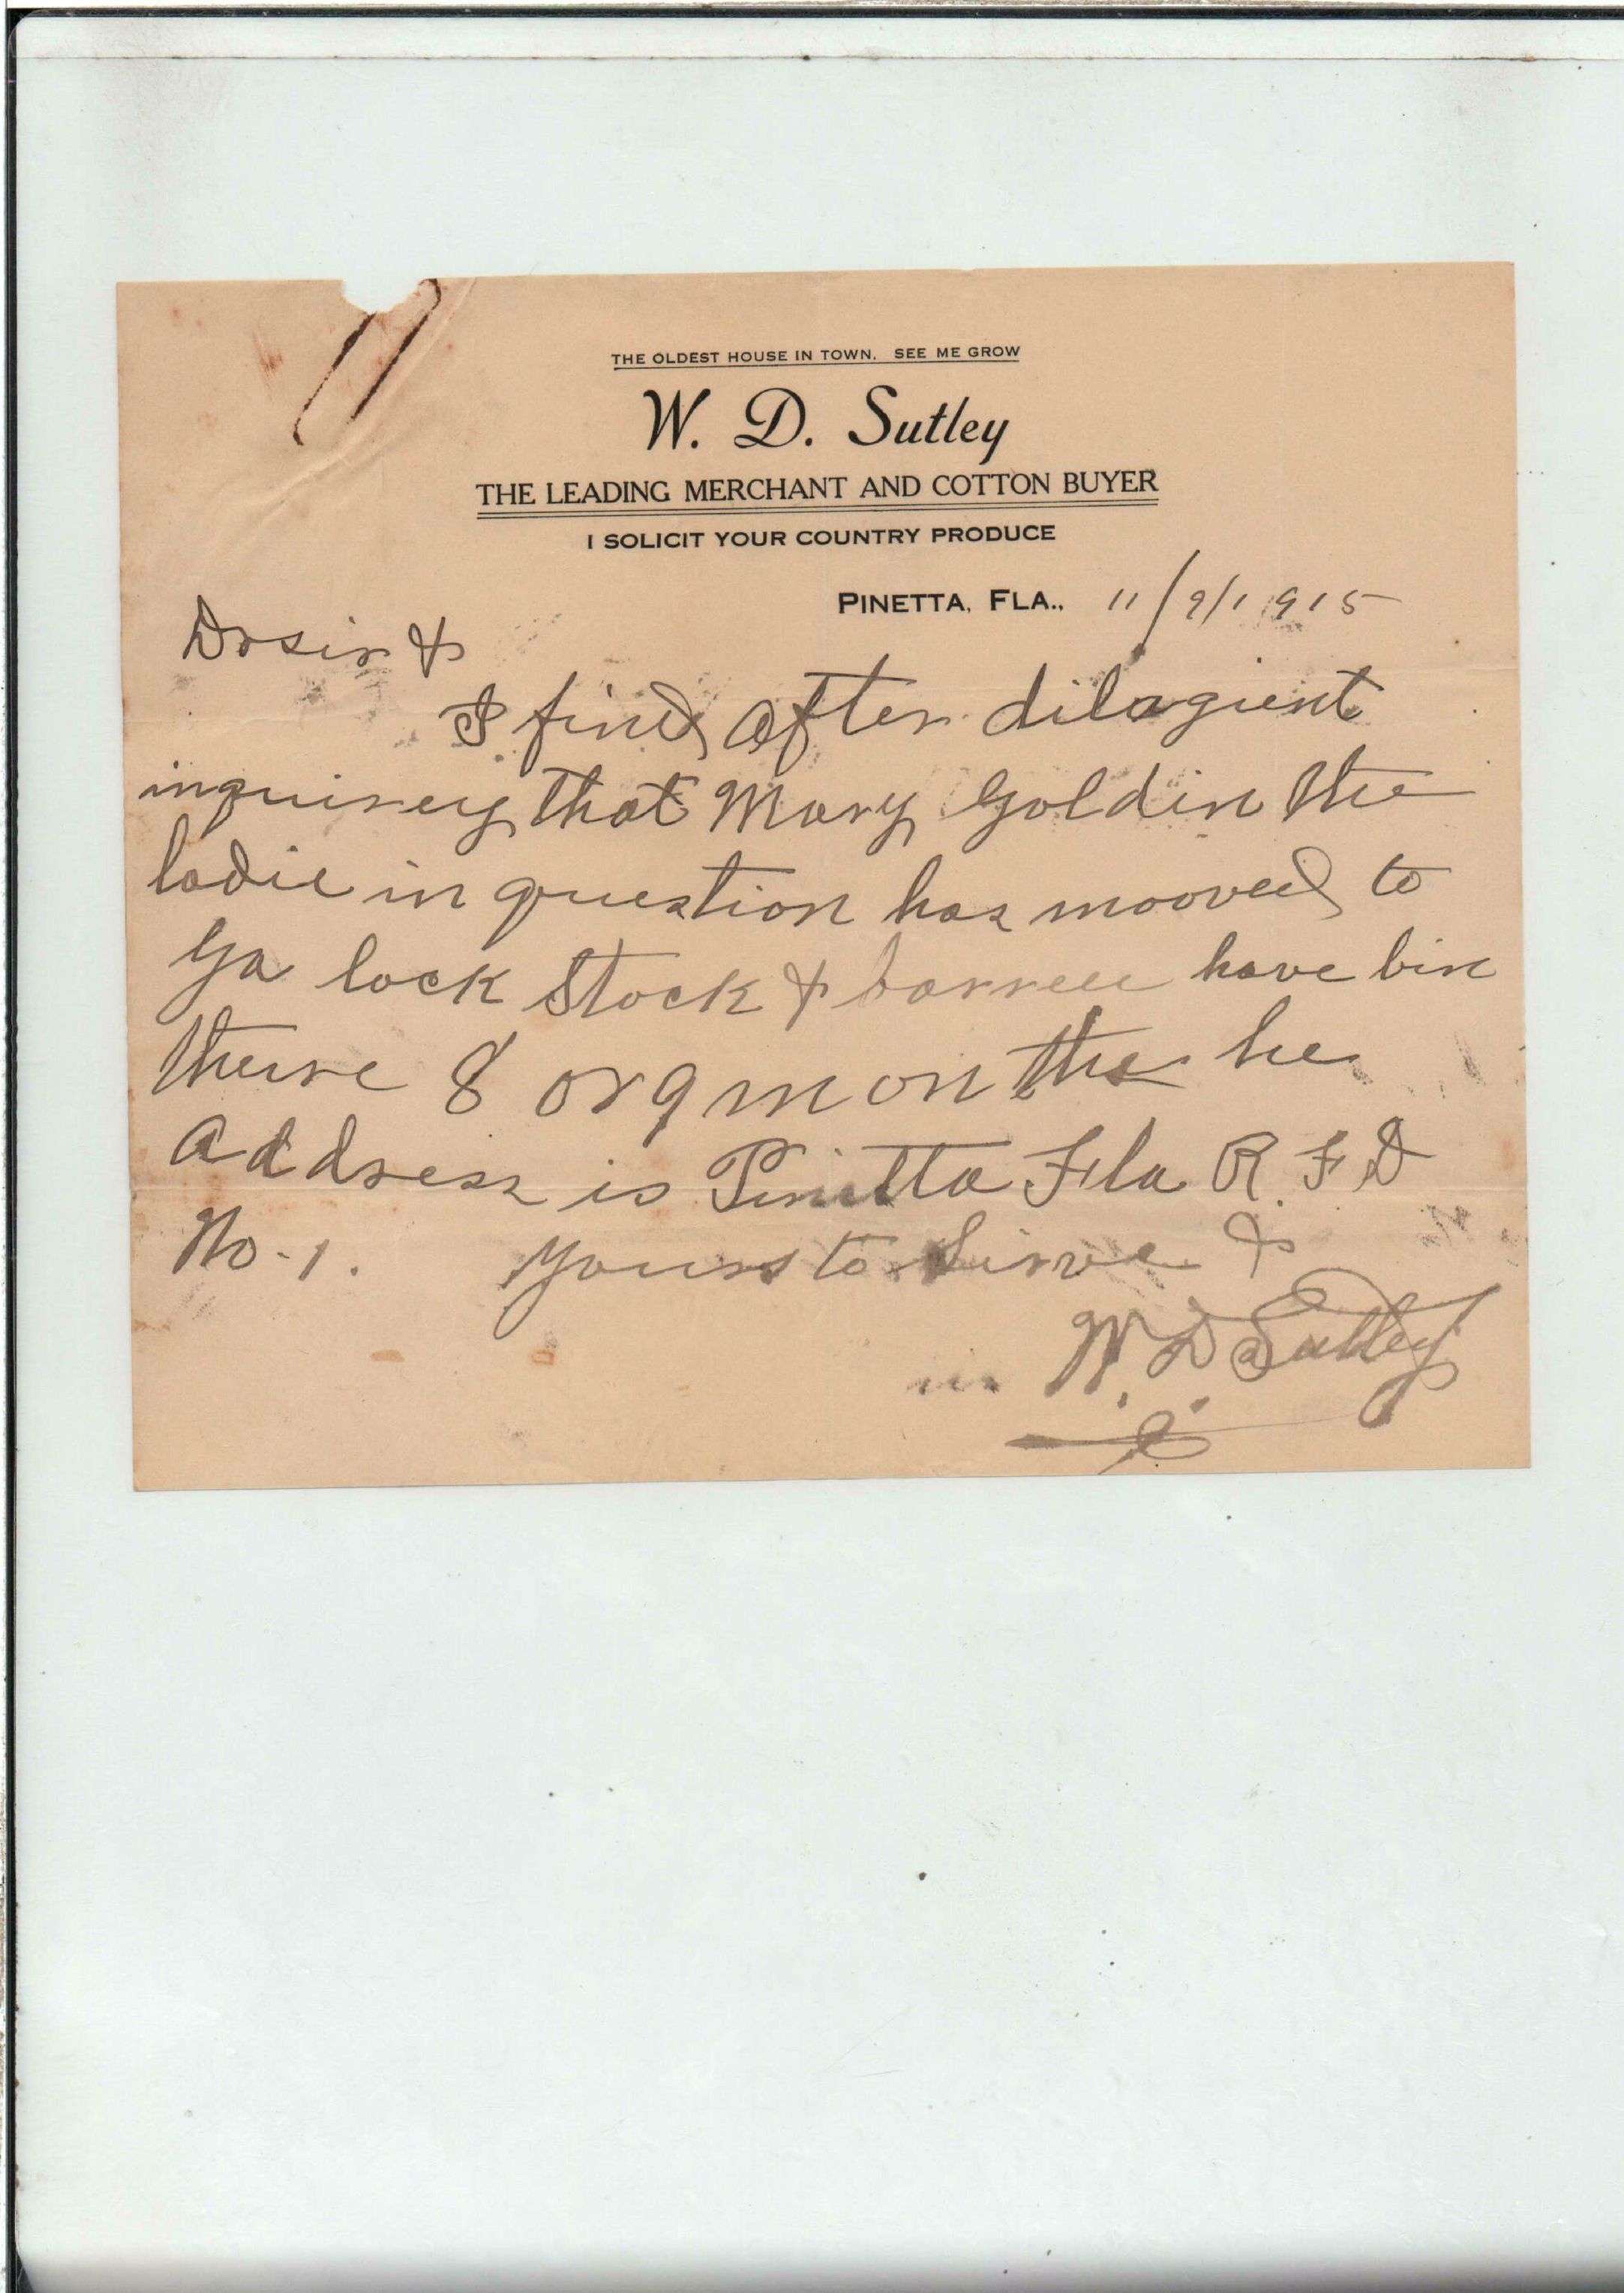 THE OLDEST HOUSE IN TOWN. SEE ME GROW
W. D. Sutley
THE LEADING MERCHANT AND COTTON BUYER
I SOLICIT YOUR COUNTRY PRODUCE
PINETTA, FLA., 11/9/1915
Dr sir &
I find after dilagient
inquirey that Mary Goldin the
ladie in question has mooved to
Ga lock stock & barrell have bin
theire 8 or 9 months he
address is Pinitta Fla R. F D
No-1. Yours to Sirve &
W. D Sutley